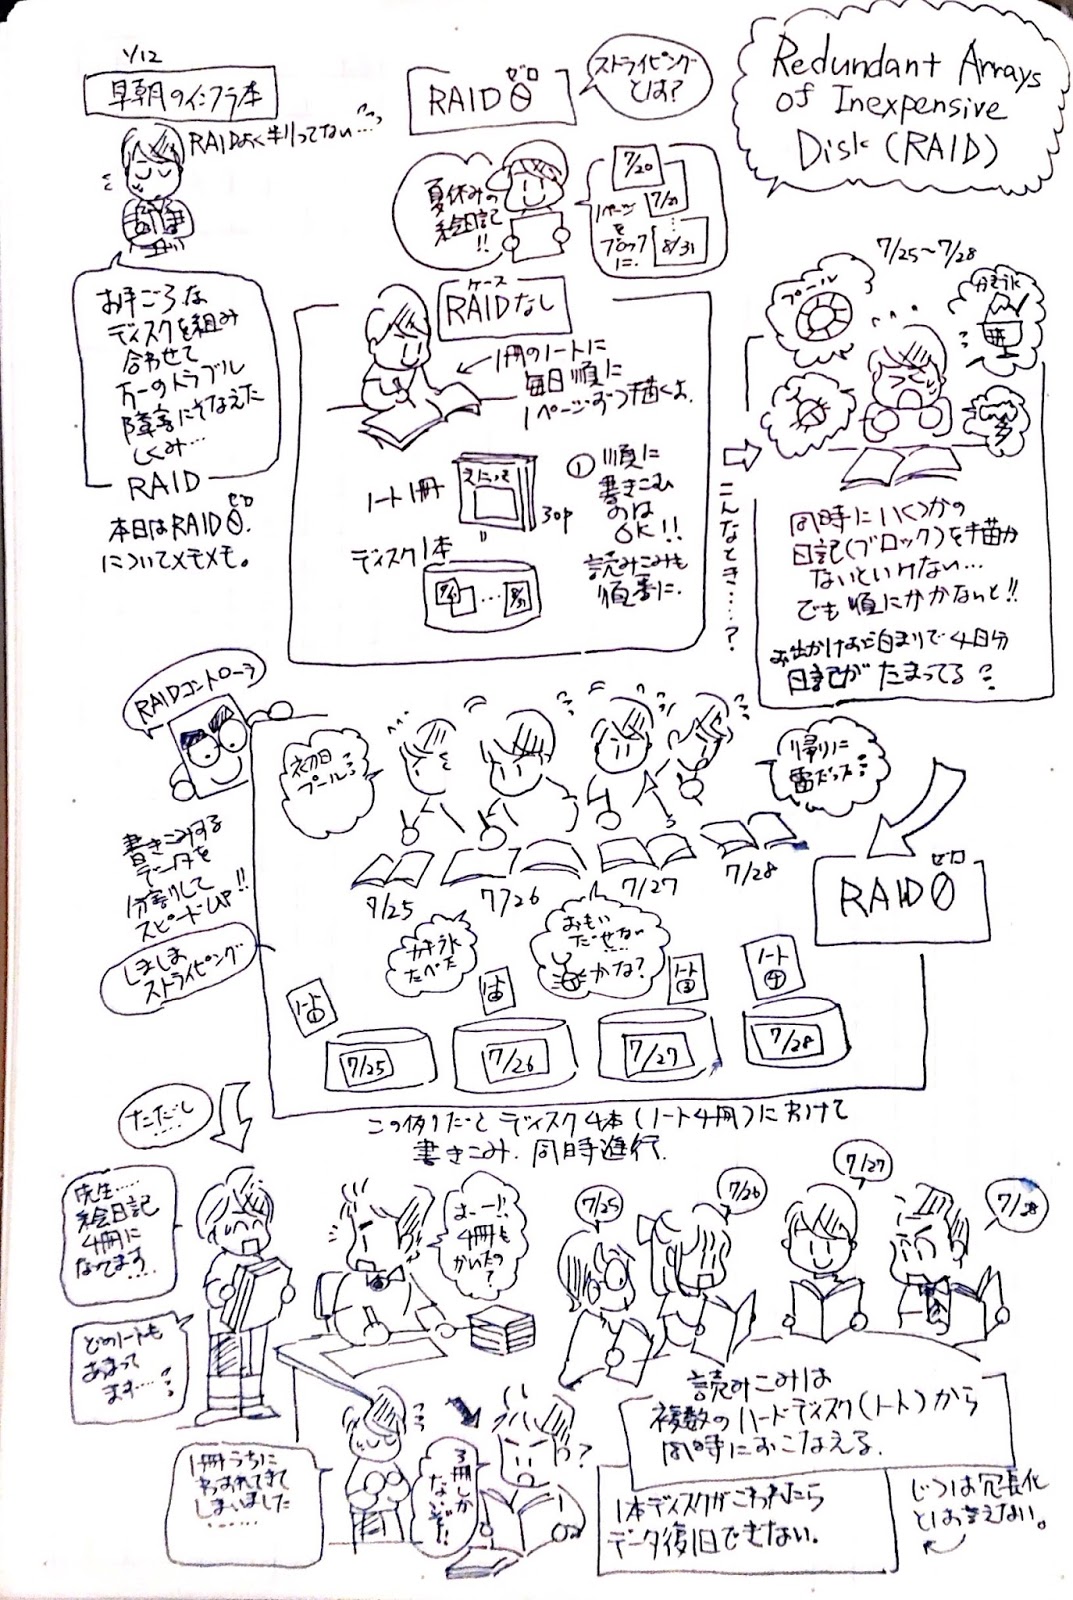 1/12
早朝のインフラ本
RAIDよく判ってない…
RAID0
ゼロ
ストライピング
とは?
Redundant Arrays
of Inexpensive
Disk (RAID)
お手ごろな
ディスクを組み
合わせて
万一のトラブル
障害にそなえた
しくみ…
RAID
本日はRAID0.
ゼロ
についてメモメモ。
夏休みの
絵日記
!!
7/20
7/21
8/31
1ページ
を
ブロック
に.
ケース
RAIDなし
1冊のノートに
毎日順に
1ページずつ描くよ.
ノート1冊
えにっき
30p
ディスク1本
8/31
① 順に
書きこむ
のは
OK!!
読みこみも
順番に.
こんなとき…?
7/25〜7/28
プール
同時にいくつかの
日記(ブロック)を描か
ないといけない…
でも順にかかないと!!
お出かけお泊まりで4日分
日記がたまってる
RAIDコントローラ
書きこみする
データを
分割して
スピードUP!!
しましま
ストライピング
初日
プール
帰りに
雷だった
7/25
7/26
7/27
7/28
ゼロ
RAID0
カキ氷
たべた
おもい
だせない
…
かな?
ノート
①
ノート
②
ノート
③
ノート
④
7/25
7/26
7/27
7/28
この例だとディスク4本(ノート4冊)にわけて
書きこみ.同時進行.
ただし
……
先生……
絵日記
4冊に
なってます
……
どのノートも
あまって
ます……
はぁー!!
4冊も
かいたの
?
7/25
7/26
7/27
7/28
読みこみは
複数のハードディスク(ノート)から
同時におこなえる.
1冊うちに
わすれてきて
しまいました
……
3冊しか
ないぞ!!
?
1本ディスクがこわれたら
データ復旧できない.
じつは冗長化
とは言えない。